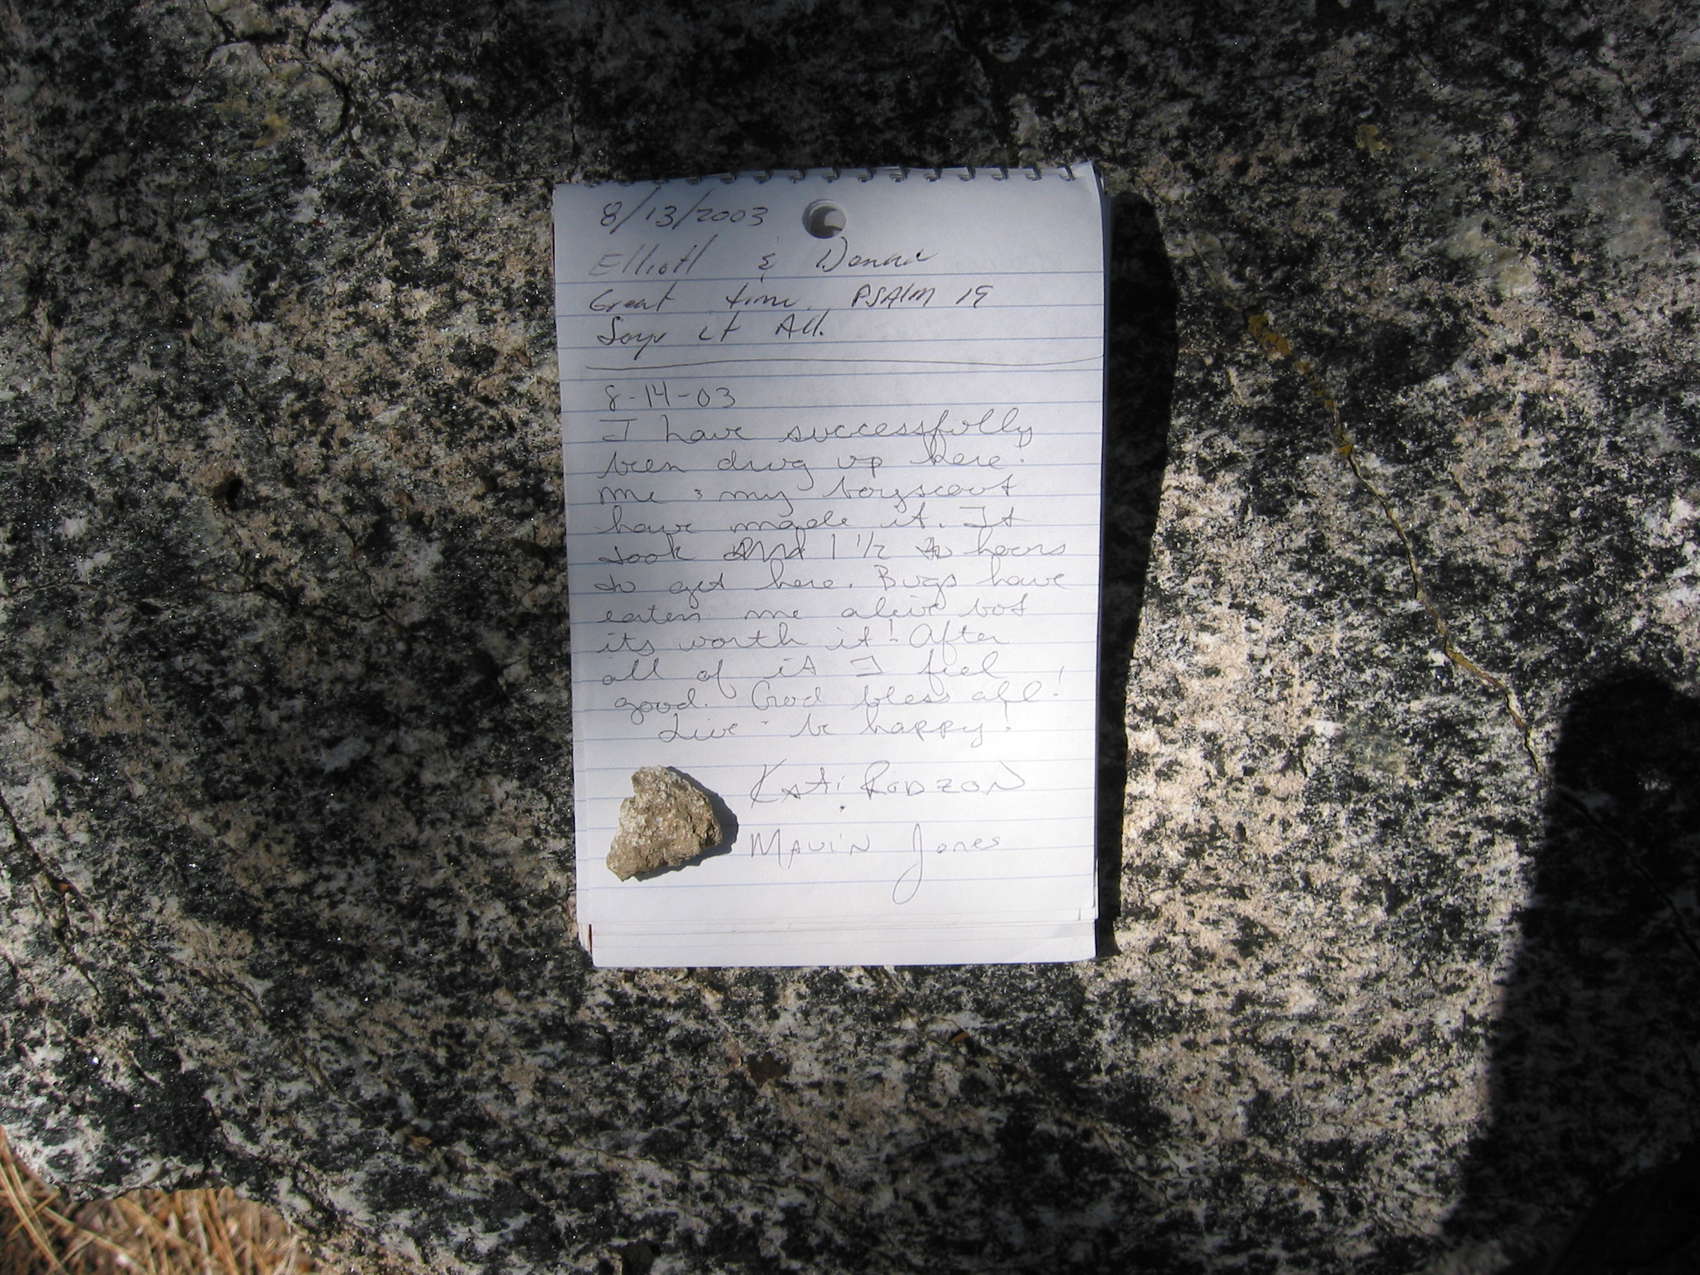 8/13/2003
Elliott & Donna
Great time PSAlM 19
Says it All.
8-14-03
I have successfully
been drug up here!
me & my boyscout
have made it. It
took 1 1/2 hours
to get here. Bugs have
eaten me alive but
its worth it! After
all of it I feel
good. God bless all!
Live - be happy!
Kati Rodzon
Mavin Jones